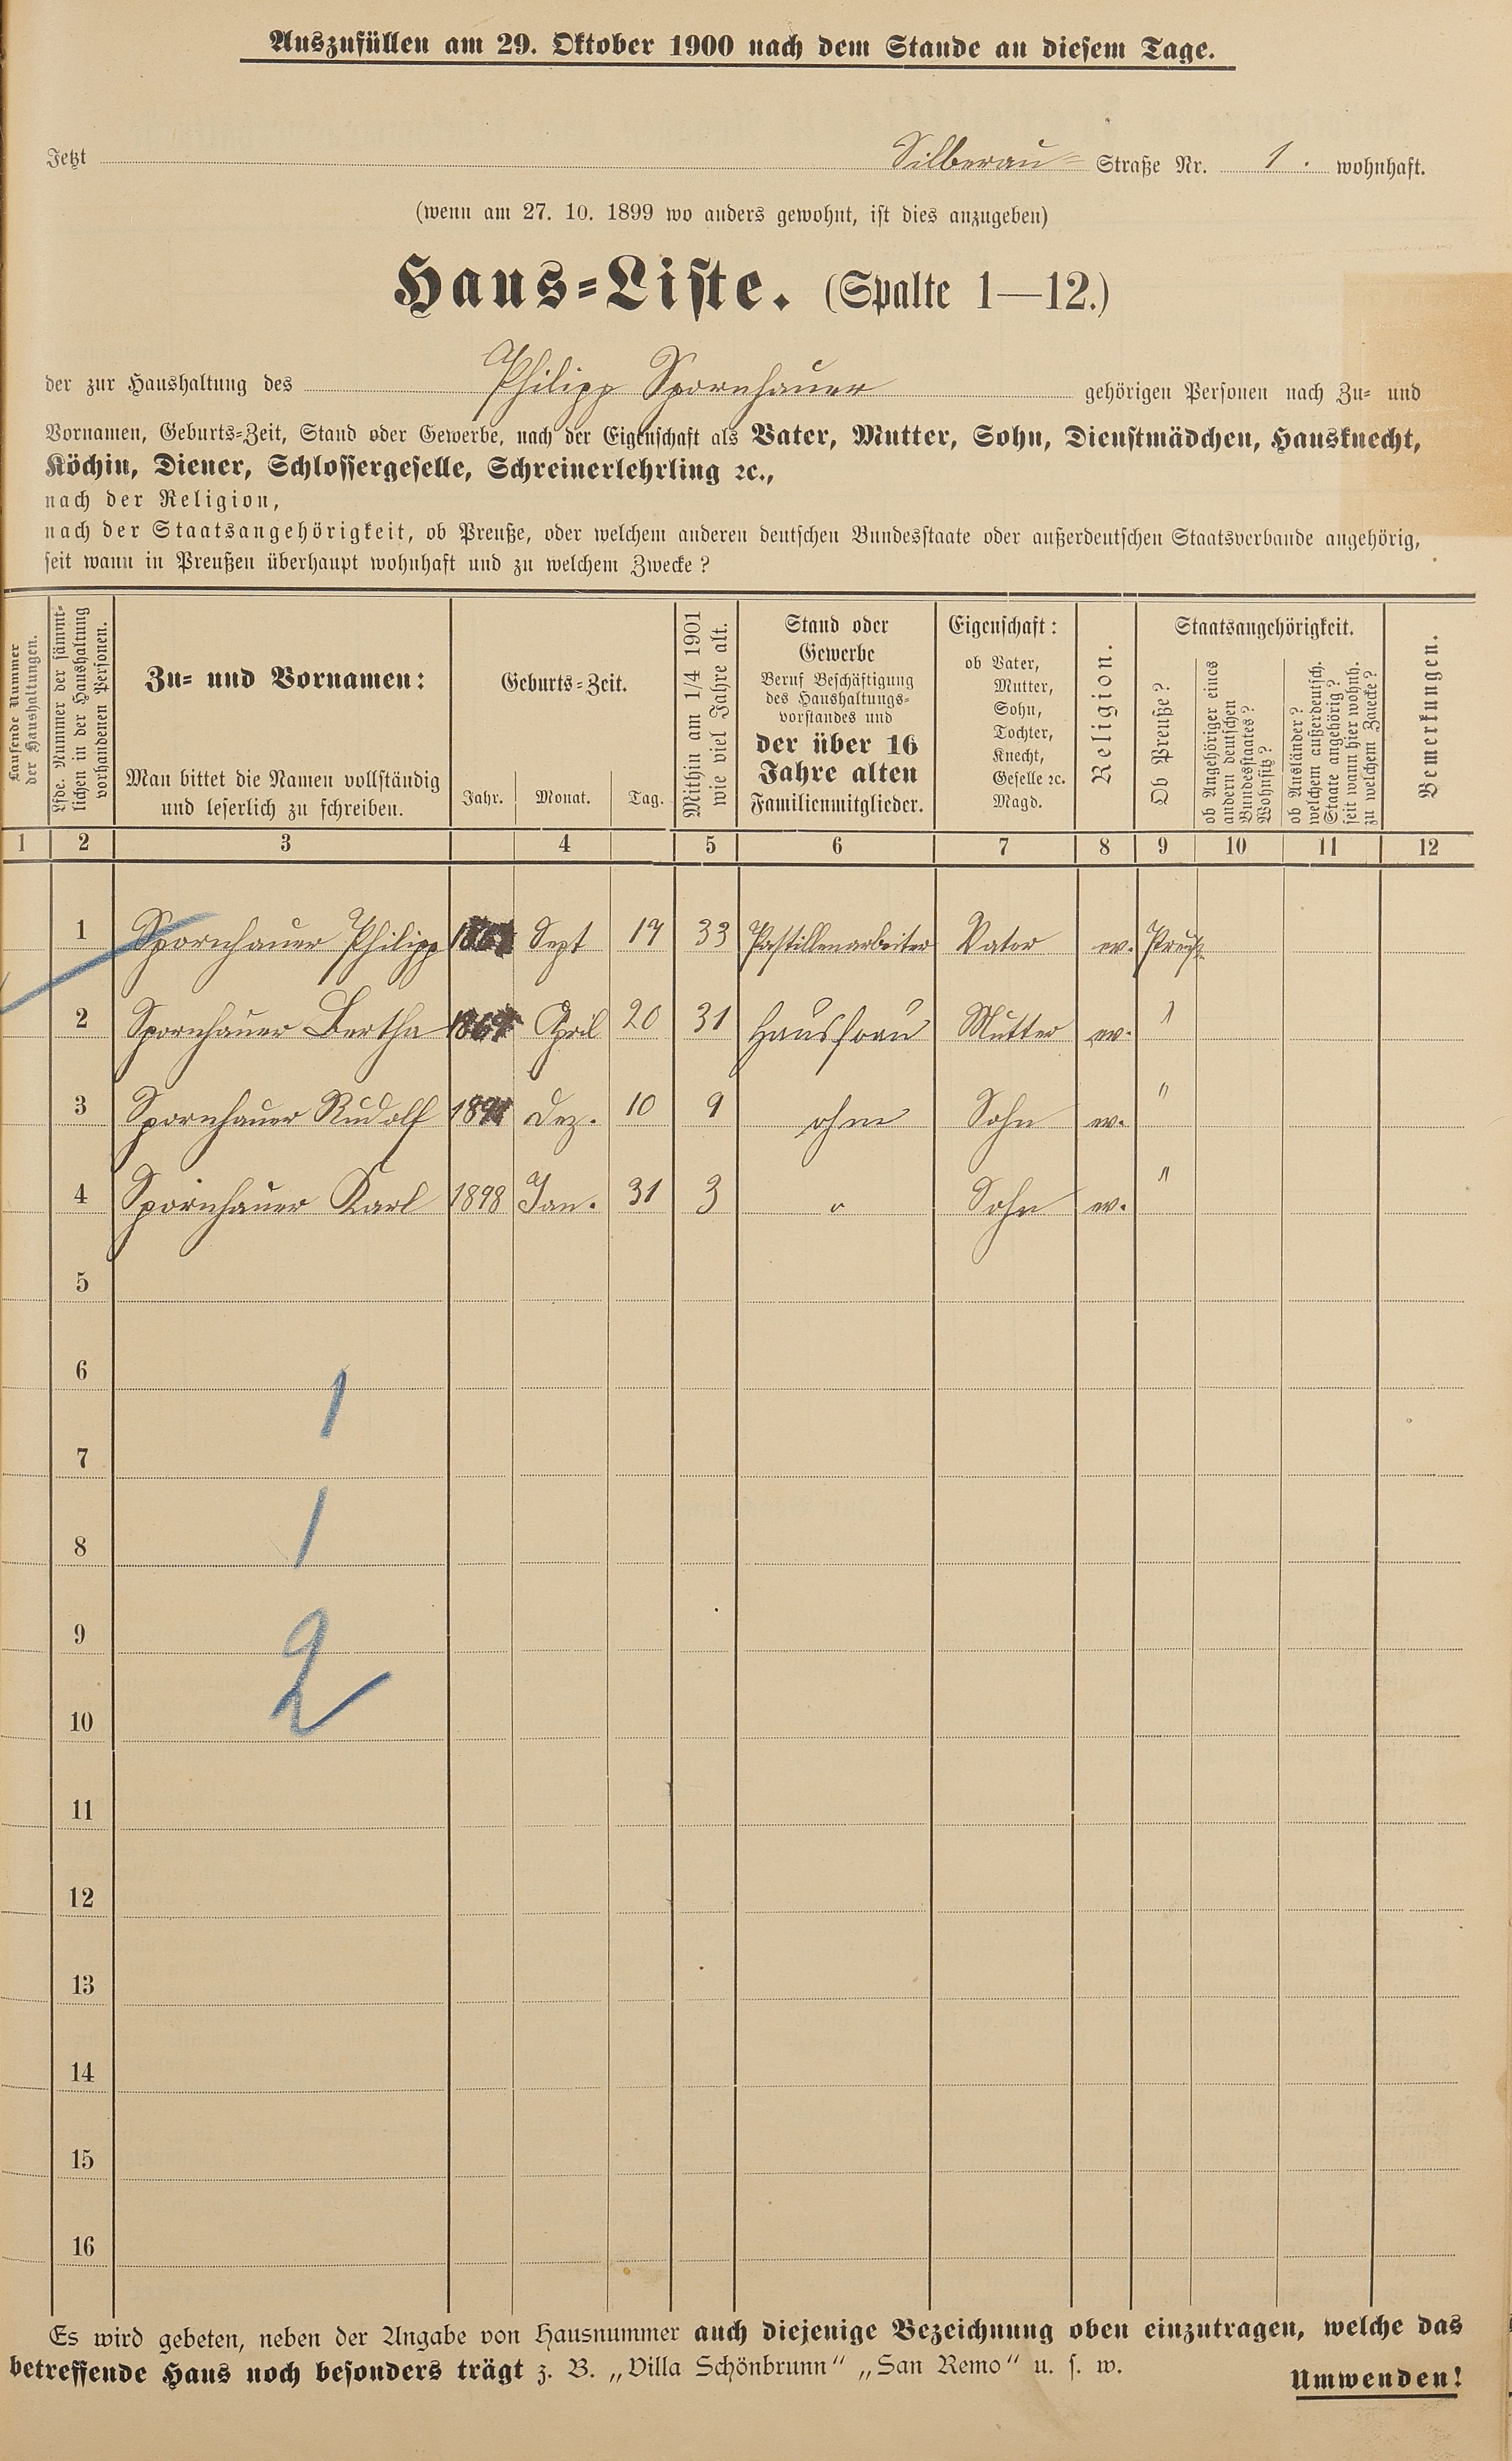 Auszufüllen am 29. Oktober 1900 nach dem Stande an diesem Tage.
Jetzt Silberau= Straße Nr. 1. wohnhaft.
(wenn am 27. 10. 1899 wo anders gewohnt, ist dies anzugeben)
Haus=Liste. (Spalte 1—12.)
der zur Haushaltung des Philipp Spornhauer gehörigen Personen nach Zu= und
Vornamen, Geburts=Zeit, Stand oder Gewerbe, nach der Eigenschaft als Vater, Mutter, Sohn, Dienstmädchen, Hausknecht,
Köchin, Diener, Schlossergeselle, Schreinerlehrling ꝛc.,
nach der Religion,
nach der Staatsangehörigkeit, ob Preuße, oder welchem anderen deutschen Bundesstaate oder außerdeutschen Staatsverbande angehörig,
seit wann in Preußen überhaupt wohnhaft und zu welchem Zwecke?
Laufende Nummer
der Haushaltungen.
Lfde. Nummer der sämmt=
lichen in der Haushaltung
vorhandenen Personen.
Zu= und Vornamen:
Man bittet die Namen vollständig
und leserlich zu schreiben.
Geburts=Zeit.
Jahr. Monat. Tag.
Mithin am 1/4 1901
wie viel Jahre alt.
Stand oder
Gewerbe
Beruf Beschäftigung
des Haushaltungs=
vorstandes und
der über 16
Jahre alten
Familienmitglieder.
Eigenschaft:
ob Vater,
Mutter,
Sohn,
Tochter,
Knecht,
Geselle ꝛc.
Magd.
Religion.
Staatsangehörigkeit.
Ob Preuße?
ob Angehöriger eines
andern deutschen
Bundesstaates?
Wohnsitz?
ob Ausländer?
welchem außerdeutsch.
Staate angehörig?
seit wann hier wohnh.
zu welchem Zwecke?
Bemerkungen.
1 2 3 4 5 6 7 8 9 10 11 12
1 Spornhauer Philipp Sept 17 33 Pastillenarbeiter Vater ev. Preuße
2 Spornhauer Bertha April 20 31 Hausfrau Mutter ev. "
3 Spornhauer Rudolf Dez. 10 9 ohne Sohn ev. "
4 Spornhauer Karl 1898 Jan. 31 3 " Sohn ev. "
5
6
1
7
1
8
9
2
10
11
12
13
14
15
16
Es wird gebeten, neben der Angabe von Hausnummer auch diejenige Bezeichnung oben einzutragen, welche das
betreffende Haus noch besonders trägt z. B. „Villa Schönbrunn“ „San Remo“ u. s. w.
Umwenden!